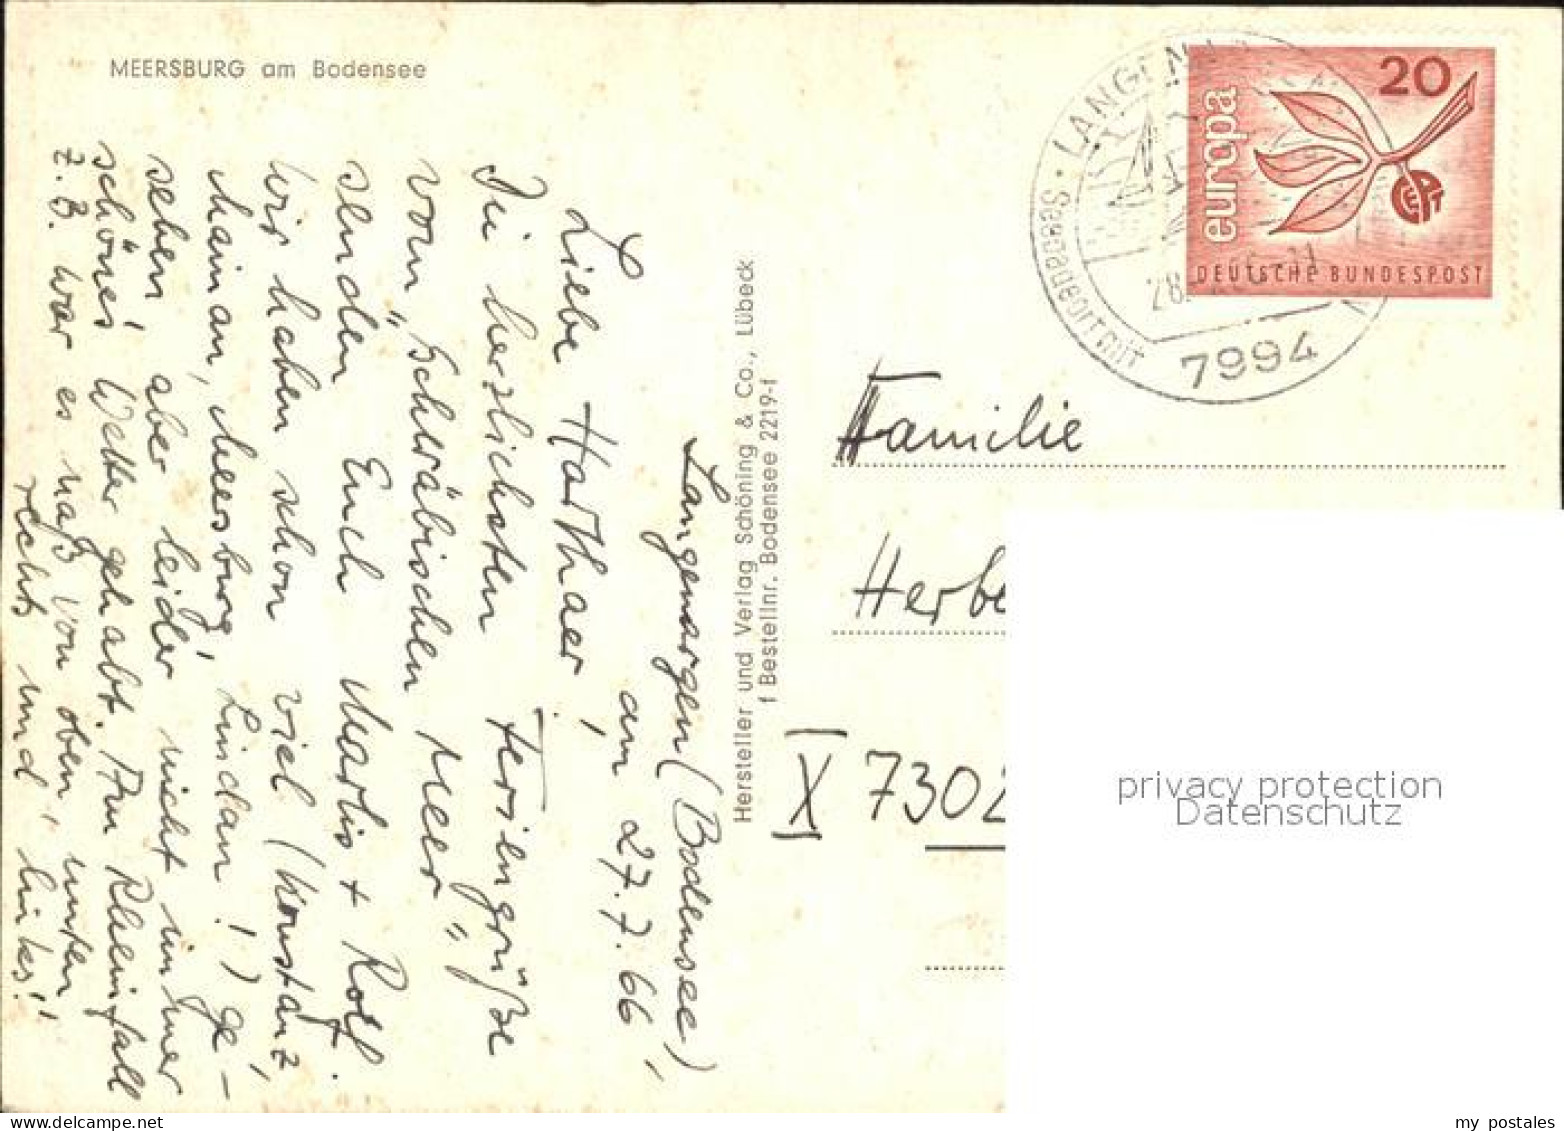 MEERSBURG am Bodensee
Langenargen (Bodensee)
am 27.7.66
Liebe Harthaer,
Die herzlichsten Feriengrüße
vom "Schwäbischen Meer"
senden Euch Marlis + Rolf.
Wir haben schon viel (Konstanz,
Mainau, Meersburg, Lindau !!) ge-
sehen, aber leider nicht immer
schönes Wetter gehabt. Am Rheinfall
z. B. war es naß von oben, unten,
rechts und links!!
Hersteller und Verlag Schöning & Co., Lübeck
f Bestellnr. Bodensee 2219-f
LANGEN
Seebadeort mit
28.
7994
20
europa
CEPT
DEUTSCHE BUNDESPOST
Familie
Herbe
X 7302
privacy protection
Datenschutz
my postales